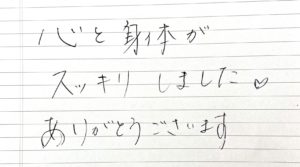 心と身体が
スッキリしました♡
ありがとうございます